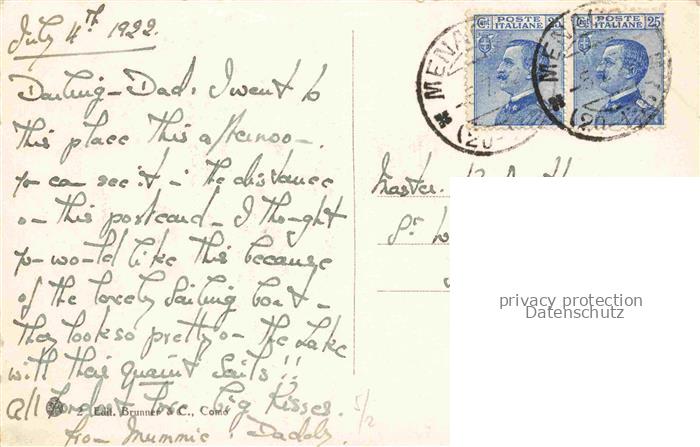 July 4th 1922.
Darling Dad: I went to
this place this afternoon.
you can see it in the distance
on this postcard. I thought
you would like this because
of the lovely Sailing boat -
they look so pretty on the Lake
with their quaint Sails!!
All fondest love big Kisses.
from Mummie: Daddy.
2 Edit. Brunner & C., Como
5/2
POSTE
ITALIANE
25
POSTE
ITALIANE
25
MENA
(20
MENA
(20
Master.
privacy protection
Datenschutz